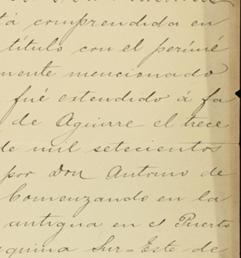 tá comprendida en
título con el perimé
mente mencionado
fué estendido á fa
de Aguirre el trece
de mil setecientos
por Don Antonio de
Comenzando en la
antigua en el Puerto
quina Sur-Este de